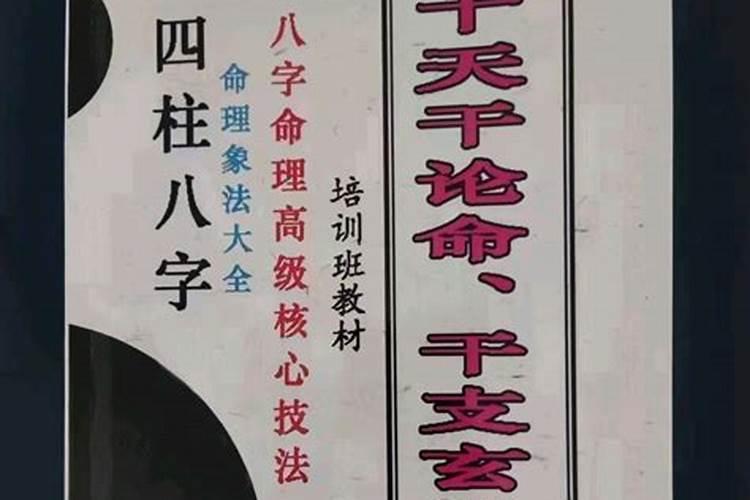 十天干论命、干支玄
培训班教材
八字命理高级核心技法
命理象法大全
四柱八字